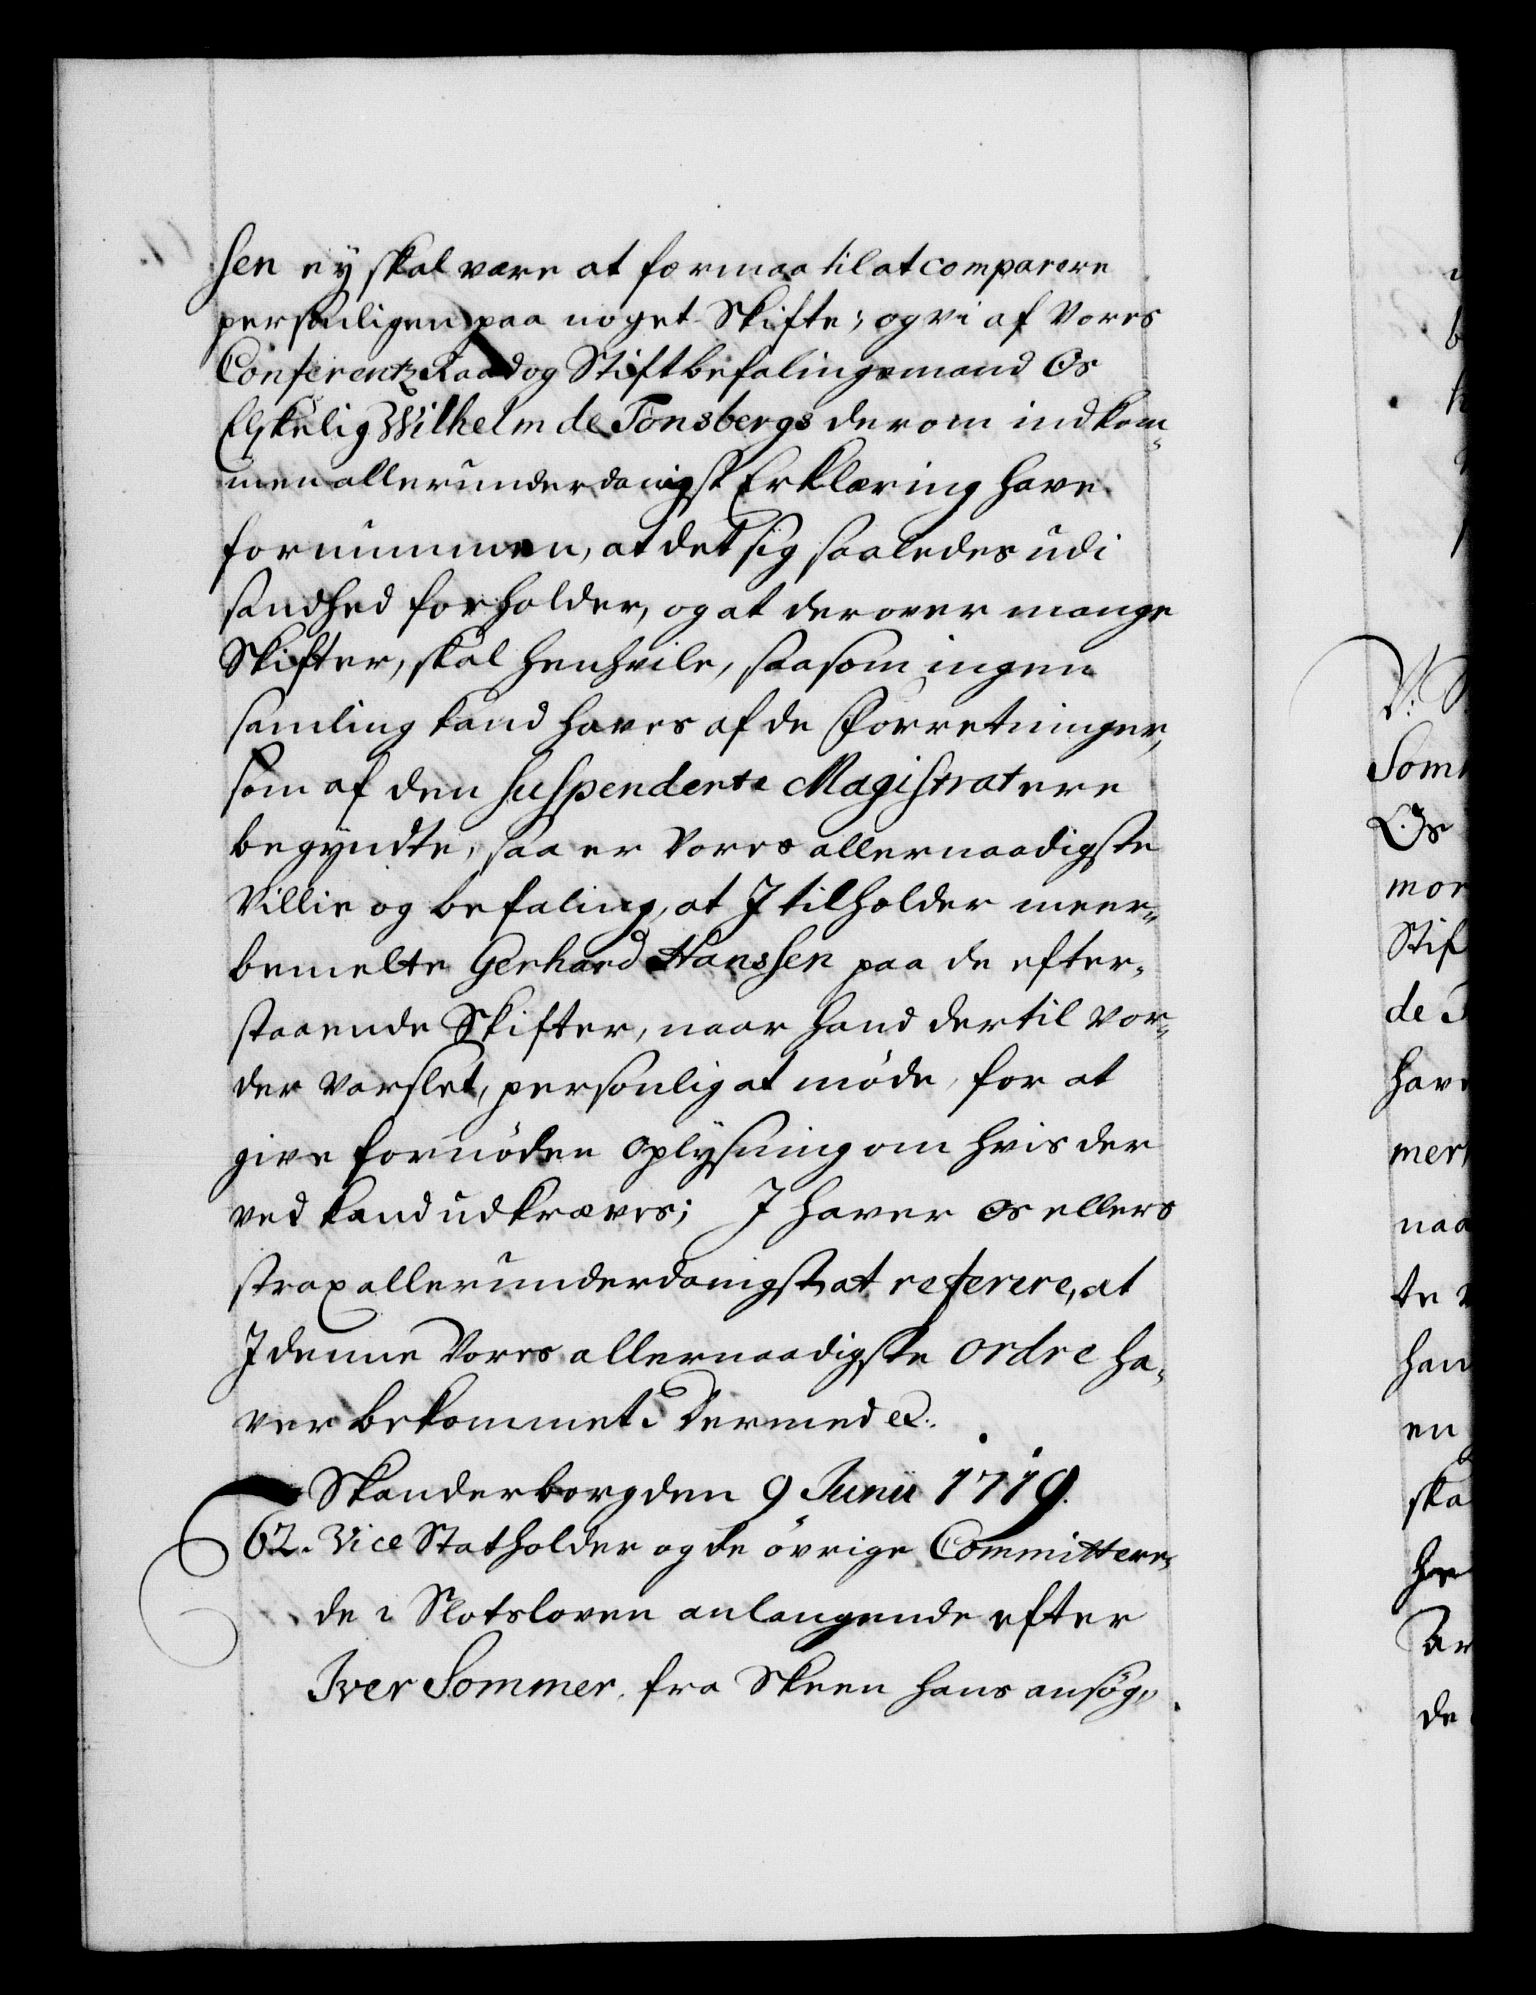 sen ey skal være at formaa til at comparere
personligen paa noget Skifte; og vi af Vores
Conferentz Raad og Stiftbefalingsmand Os
Elskelig Wilhelm de Tonsbergs derom indkom¬
men allerunderdanigst Erklæring have
fornummen, at det sig saaledes udi
sandhed forholder, og at derover mange
Skifter, skal henhvile, saasom ingen
samling kand haves af de Forretninger,
som af den suspenderte Magistrat ere
begyndte, saa er Vores allernaadigste
Villie og befaling, at I tilholder meer¬
bemelte Gerhard Hanssen paa de efter¬
staaende Skifter, naar hand dertil vor¬
der varslet, personlig at møde, for at
give fornøden oplysning om hvis der
ved kand udkræves; I haver Os ellers
strax allerunderdanigst at referere, at
I denne Vores allernaadigste ordre ha¬
ver bekommet. Dermed etc.
Skanderborg den 9 Junii 1719.
62. Vice Statholder og de øvrige Committere¬
de i Slotsloven anlangende efter
Iver Sommer fra Skeen hans ansøg¬
Som
Os
mor
Stif
de T
hav
mer
naa
te
han
en
ska
de